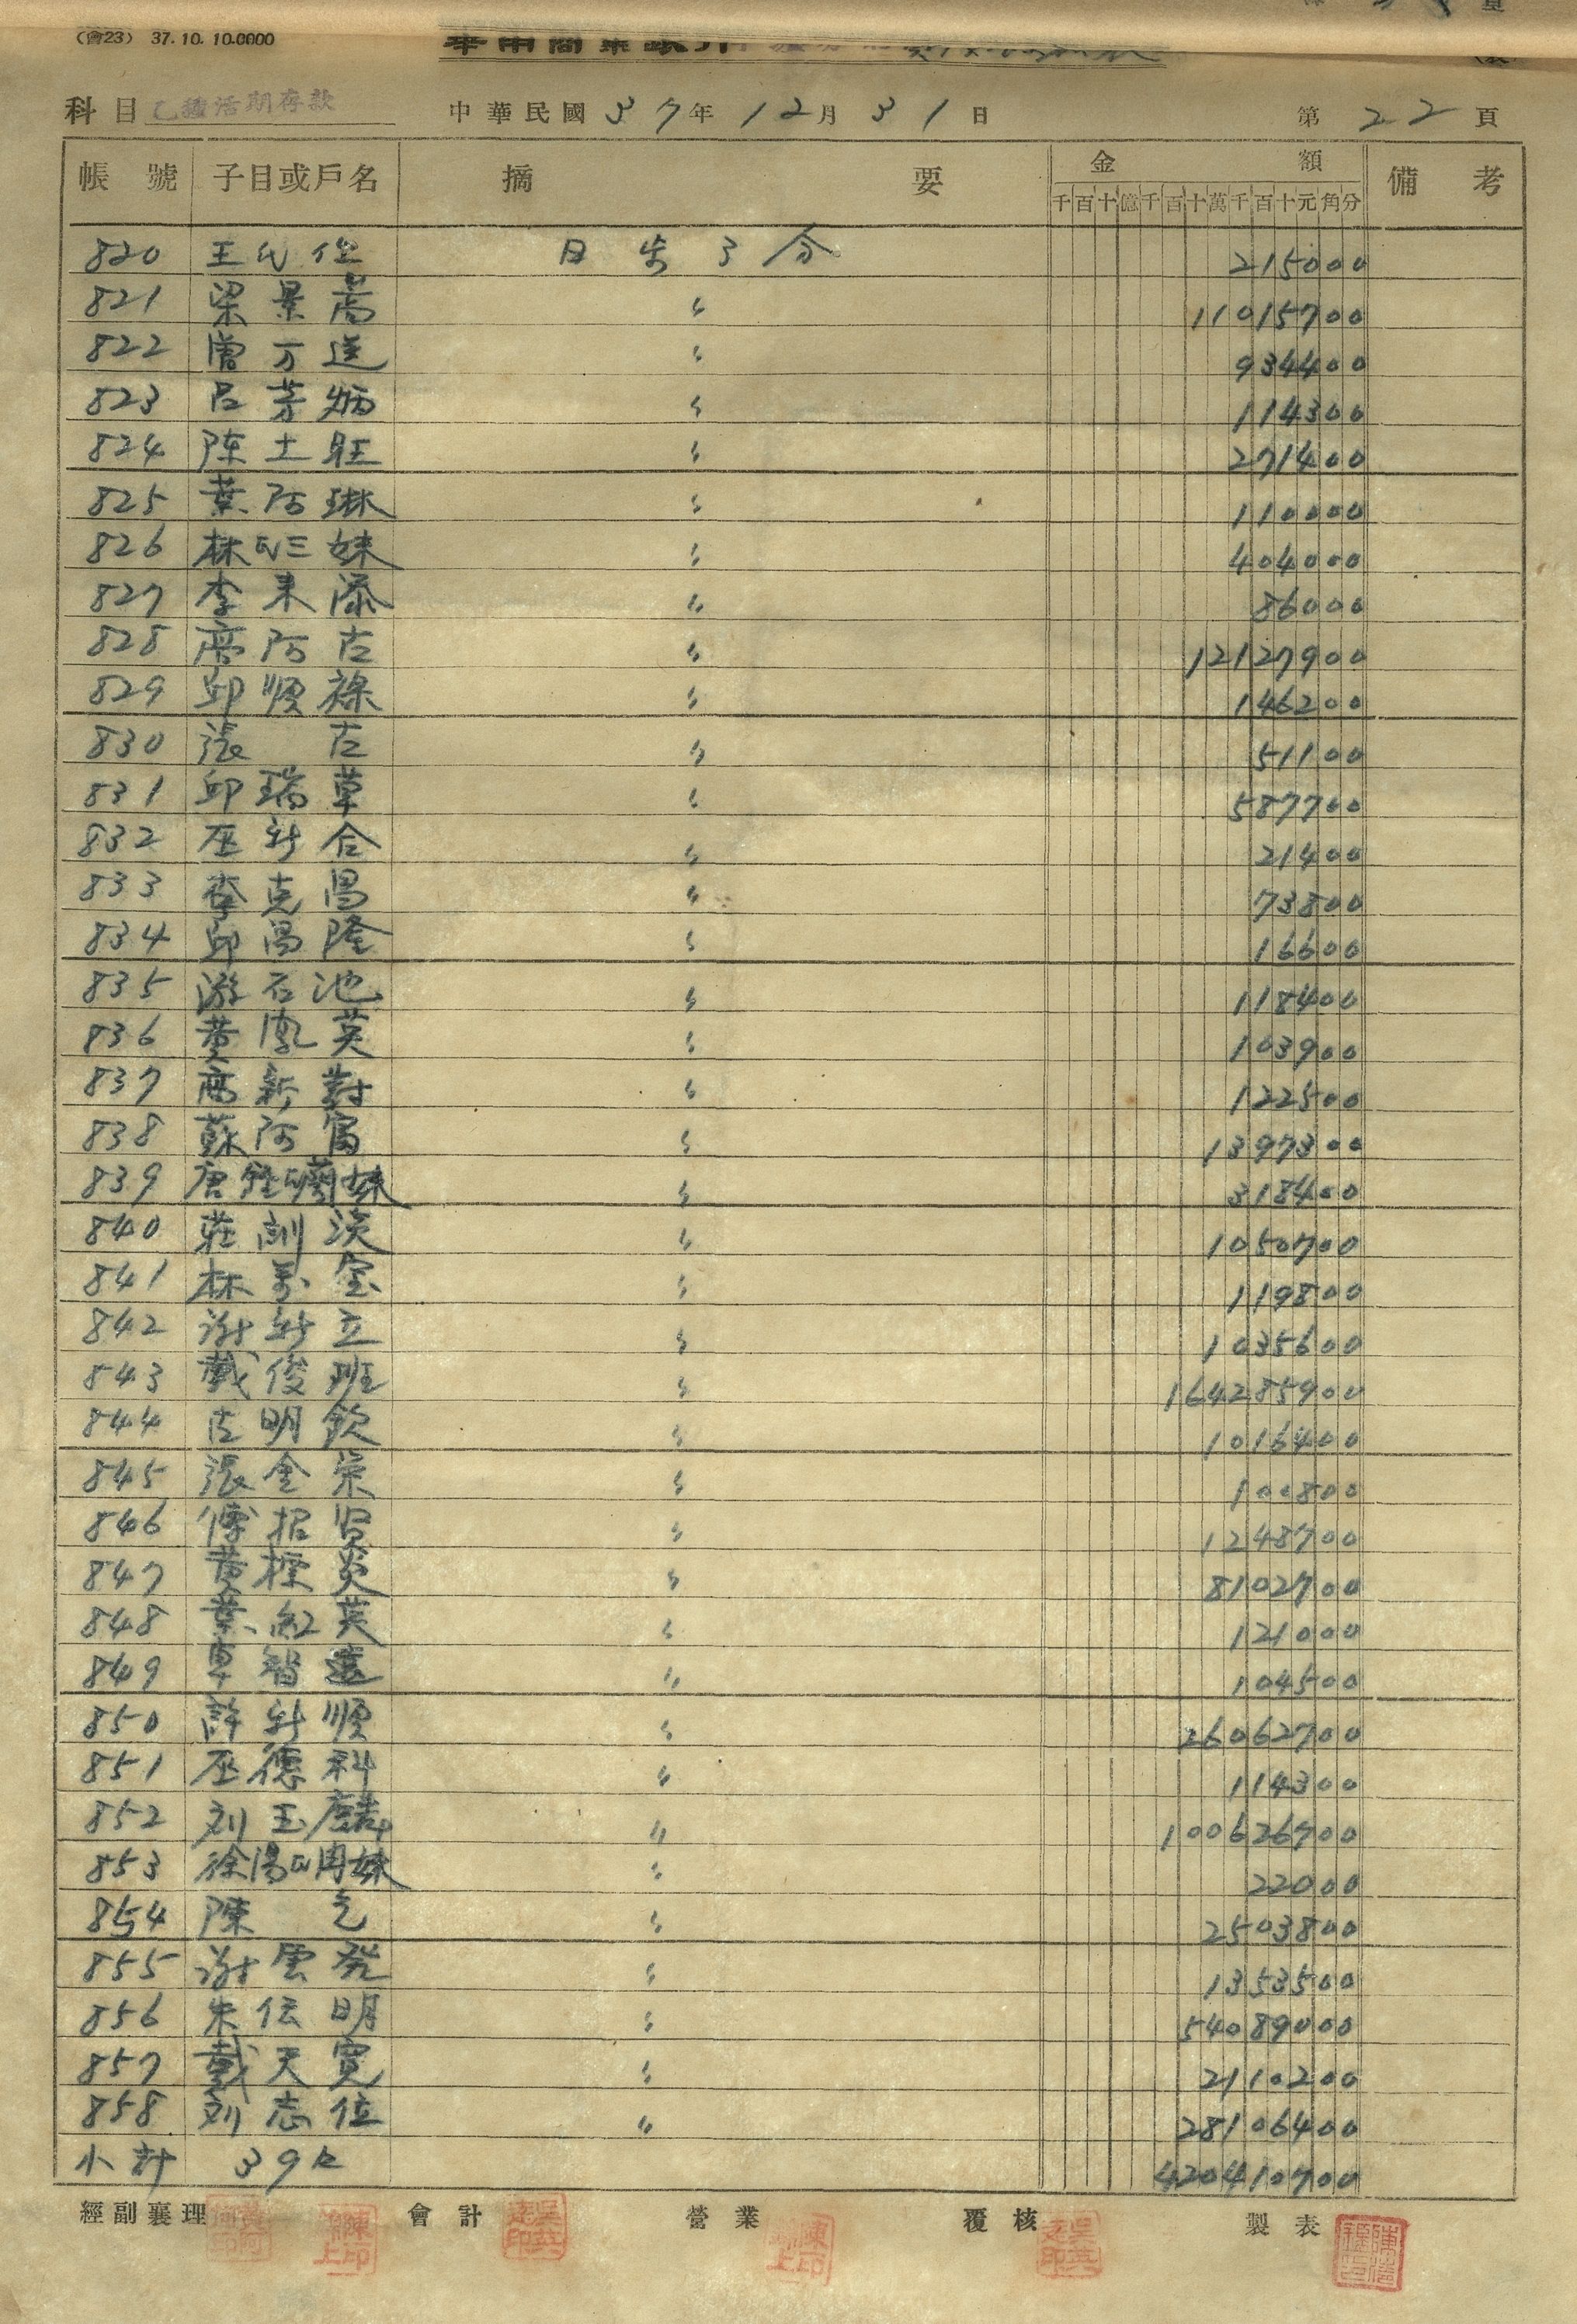 (會23) 37.10.10.0000
科目 乙種活期存款 中華民國 37年 12月 31日 第 22 頁
帳號 子目或戶名 摘要 金額 備考
千百十億千百十萬千百十元角分
820 王氏 日步3分 215000
821 梁景嵩 〃 11015700
822 曾万送 〃 934400
823 呂芳炳 〃 114300
824 陈土旺 〃 271400
825 葉阿琳 〃 110000
826 林氏三妹 〃 404000
827 李来添 〃 86000
828 高阿古 〃 12127900
829 邱順祿 〃 146200
830 張古 〃 51100
831 邱瑞草 〃 587700
832 巫新合 〃 21400
833 李克昌 〃 73800
834 邱昌隆 〃 16600
835 游石池 〃 118400
836 黄鳳英 〃 103900
837 高新對 〃 122500
838 蘇阿富 〃 1397300
839 唐鍾氏蘭妹 〃 318400
840 莊訓淡 〃 1050700
841 林金 〃 119800
842 謝新立 〃 1035600
843 戴俊班 〃 164285900
844 古明欽 〃 1016400
845 張金榮 〃 100800
846 傅招贤 〃 1248700
847 黄標炎 〃 8102700
848 葉紅英 〃 121000
849 卓智遠 〃 104500
850 許新順 〃 26062700
851 巫德科 〃 114300
852 刘玉麟 〃 100626700
853 徐湯氏周妹 〃 22000
854 陳乞 〃 2503800
855 謝雲発 〃 1353500
856 朱伝明 〃 54089000
857 戴天寛 〃 2110200
858 刘志位 〃 28106400
小計 39 420410700
經副襄理 會計 營業 覆核 製表